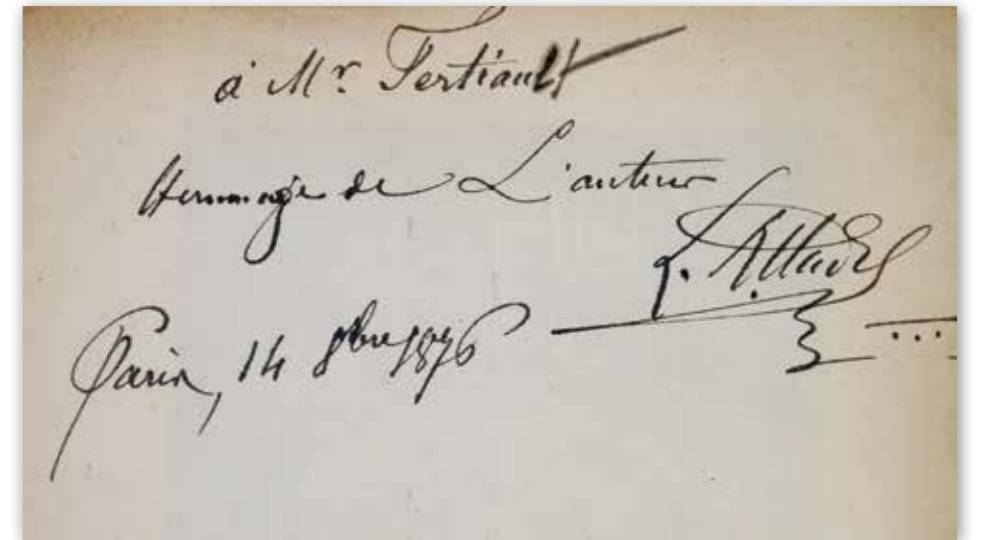 à Mr. Fertiault
Hommage de L'auteur
Paris, 14 8bre 1876